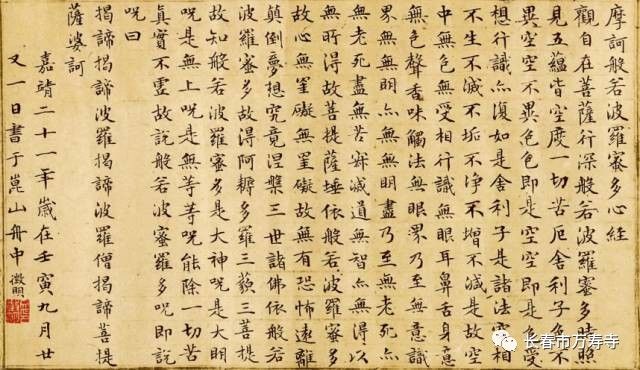 摩訶般若波羅蜜多心經
觀自在菩薩行深般若波羅蜜多時照
見五蘊皆空度一切苦厄舍利子色不
異空空不異色色即是空空即是色受
想行識亦復如是舍利子是諸法空相
不生不滅不垢不淨不增不減是故空
中無色無受相行識無眼耳鼻舌身意
無色聲香味觸法無眼界乃至無意識
界無無明亦無無明盡乃至無老死亦
無老死盡無苦集滅道無智亦無得以
無所得故菩提薩埵依般若波羅蜜多
故心無罣礙無罣礙故無有恐怖遠離
顛倒夢想究竟涅槃三世諸佛依般若
波羅蜜多故得阿耨多羅三藐三菩提
故知般若波羅蜜多是大神呪是大明
呪是無上呪是無等等呪能除一切苦
真實不虛故說般若波羅蜜多呪即說
呪曰
揭諦揭諦波羅揭諦波羅僧揭諦菩提
薩婆訶
嘉靖二十一年歲在壬寅九月廿
又一日書于崑山舟中 徵明
长春市万寿寺